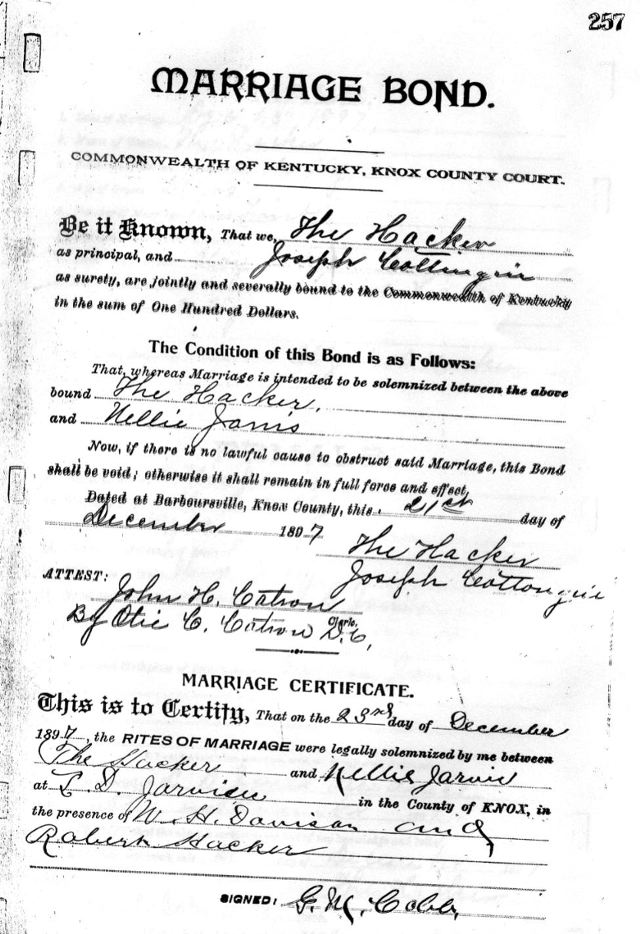 257
MARRIAGE BOND.
COMMONWEALTH OF KENTUCKY, KNOX COUNTY COURT.
Be it Known, That we, The Hacker
as principal, and Joseph Cottongin
as surety, are jointly and severally bound to the Commonwealth of Kentucky
in the sum of One Hundred Dollars.
The Condition of this Bond is as Follows:
That, whereas Marriage is intended to be solemnized between the above
bound The Hacker,
and Nellie Jarvis
Now, if there is no lawful cause to obstruct said Marriage, this Bond
shall be void; otherwise it shall remain in full force and effect.
Dated at Barboursville, Knox County, this 21st day of
December 1897
The Hacker
Joseph Cottongin
ATTEST:
John H. Catron
Clerk.
By Otie C. Catron D.C,
MARRIAGE CERTIFICATE.
This is to Certify, That on the 23rd day of December
1897, the RITES OF MARRIAGE were legally solemnized by me between
The Hacker and Nellie Jarvis
at L. D. in the County of KNOX, in
the presence of W. H. Davison and
Robert Hacker
SIGNED: G. M. Cobb,